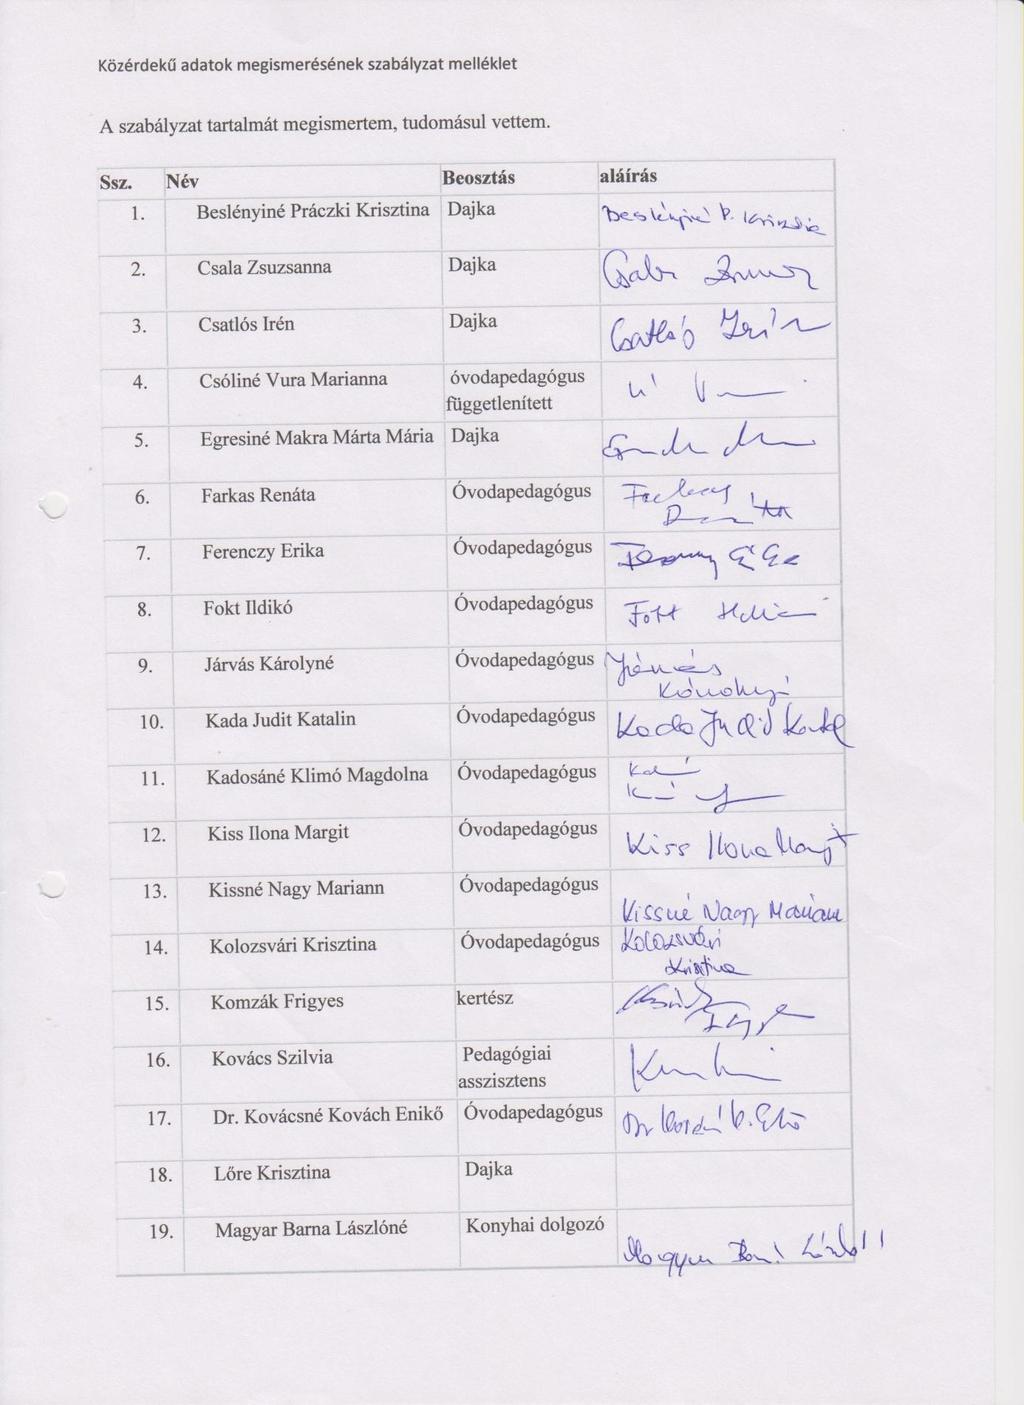 Közérdekű adatok megismerésének szabályzat melléklet
A szabályzat tartalmát megismertem, tudomásul vettem.
Ssz. Név Beosztás aláírás
1. Beslényiné Práczki Krisztina Dajka Beslényiné P. Krisztina
2. Csala Zsuzsanna Dajka Csala
3. Csatlós Irén Dajka Csatlós Irén
4. Csóliné Vura Marianna óvodapedagógus
függetlenített
5. Egresiné Makra Márta Mária Dajka
6. Farkas Renáta Óvodapedagógus Farkas
7. Ferenczy Erika Óvodapedagógus
8. Fokt Ildikó Óvodapedagógus Fokt
9. Járvás Károlyné Óvodapedagógus Járvás
Károlyné
10. Kada Judit Katalin Óvodapedagógus Kada Judit Katal
11. Kadosáné Klimó Magdolna Óvodapedagógus
12. Kiss Ilona Margit Óvodapedagógus Kiss Ilona Margit
13. Kissné Nagy Mariann Óvodapedagógus Kissné Nagy Mariann
14. Kolozsvári Krisztina Óvodapedagógus Kolozsvári
Krisztina
15. Komzák Frigyes kertész
16. Kovács Szilvia Pedagógiai
asszisztens
17. Dr. Kovácsné Kovách Enikő Óvodapedagógus Dr
18. Lőre Krisztina Dajka
19. Magyar Barna Lászlóné Konyhai dolgozó Magyar